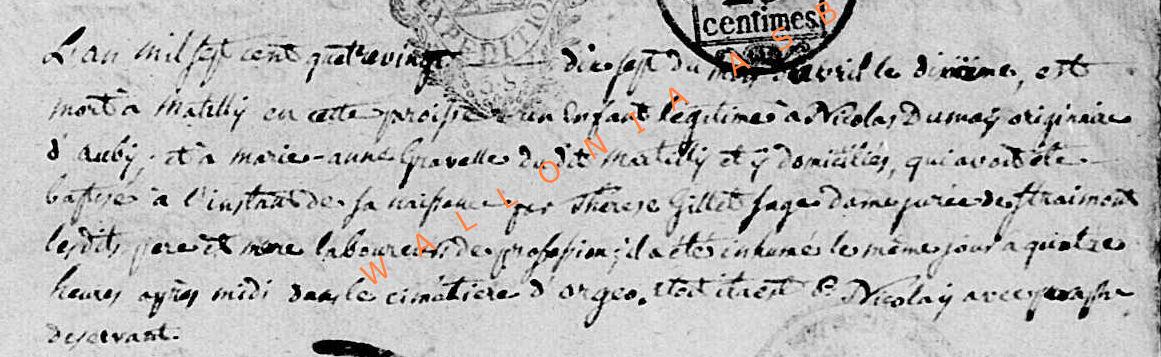 EXPEDITION
centimes
L'an mil sept cent quatrevingt dix sept du mois d'avril le dixiéme, est
mort à Martilly en cette paroisse un Enfant legitime à Nicolas Dumay originaire
d'auby, et à marie-anne Gravelle du dit Martilly et y domicilies, qui avoit été
baptisé à l'instant de sa naissance par Therese Gillet sage dame jurée de straimont
lesdits pere et mere laboureurs de profession; il a été inhumé le même jour a quatre
heures apres midi dans le cimetiere d'orgeo. P Nicolay avec paraphe
deservant.
WALLONIA ASB